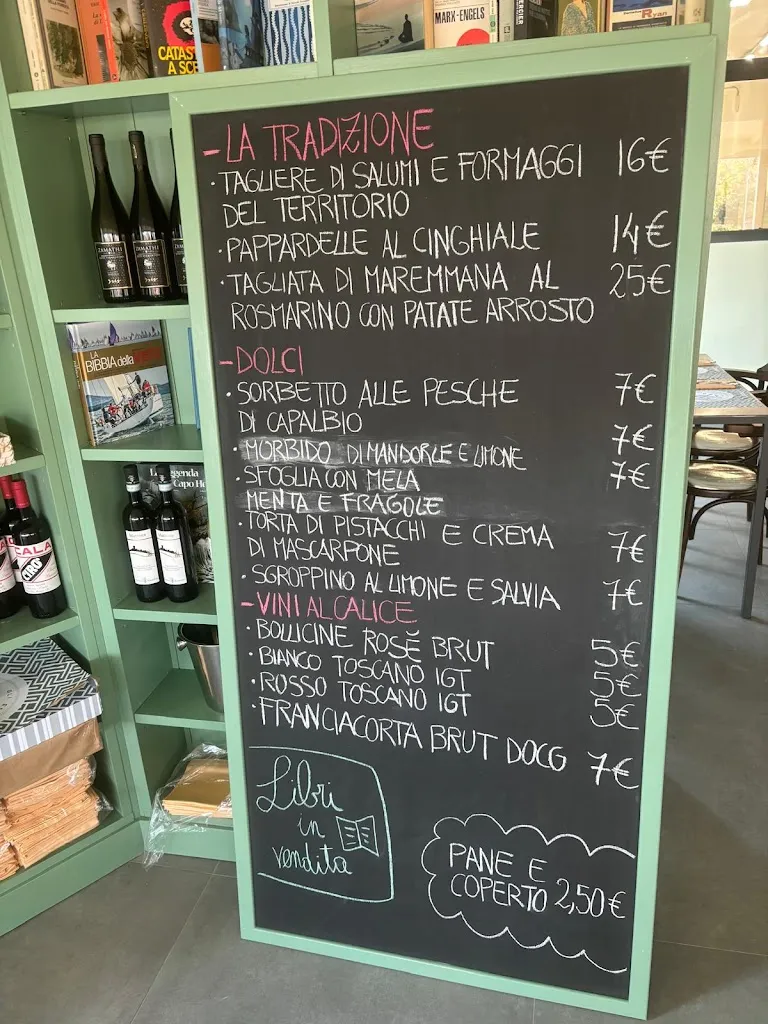 MARX-ENGELS
CATAS
A SC
Ryan
- LA TRADIZIONE
· TAGLIERE DI SALUMI E FORMAGGI 16€
DEL TERRITORIO
· PAPPARDELLE AL CINGHIALE 14€
· TAGLIATA DI MAREMMANA AL 25€
ROSMARINO CON PATATE ARROSTO
- DOLCI
· SORBETTO ALLE PESCHE 7€
DI CAPALBIO
· MORBIDO DI MANDORLE E LIMONE 7€
· SFOGLIA CON MELA 7€
MENTA E FRAGOLE
· TORTA DI PISTACCHI E CREMA 7€
DI MASCARPONE
· SGROPPINO AL LIMONE E SALVIA 7€
- VINI AL CALICE
· BOLLICINE ROSÈ BRUT 5€
· BIANCO TOSCANO IGT 5€
· ROSSO TOSCANO IGT 5€
· FRANCIACORTA BRUT DOCG 7€
Libri
in
vendita
PANE E
COPERTO 2,50€
LA
BIBBIA della
Capo
SCALA
CIRÒ